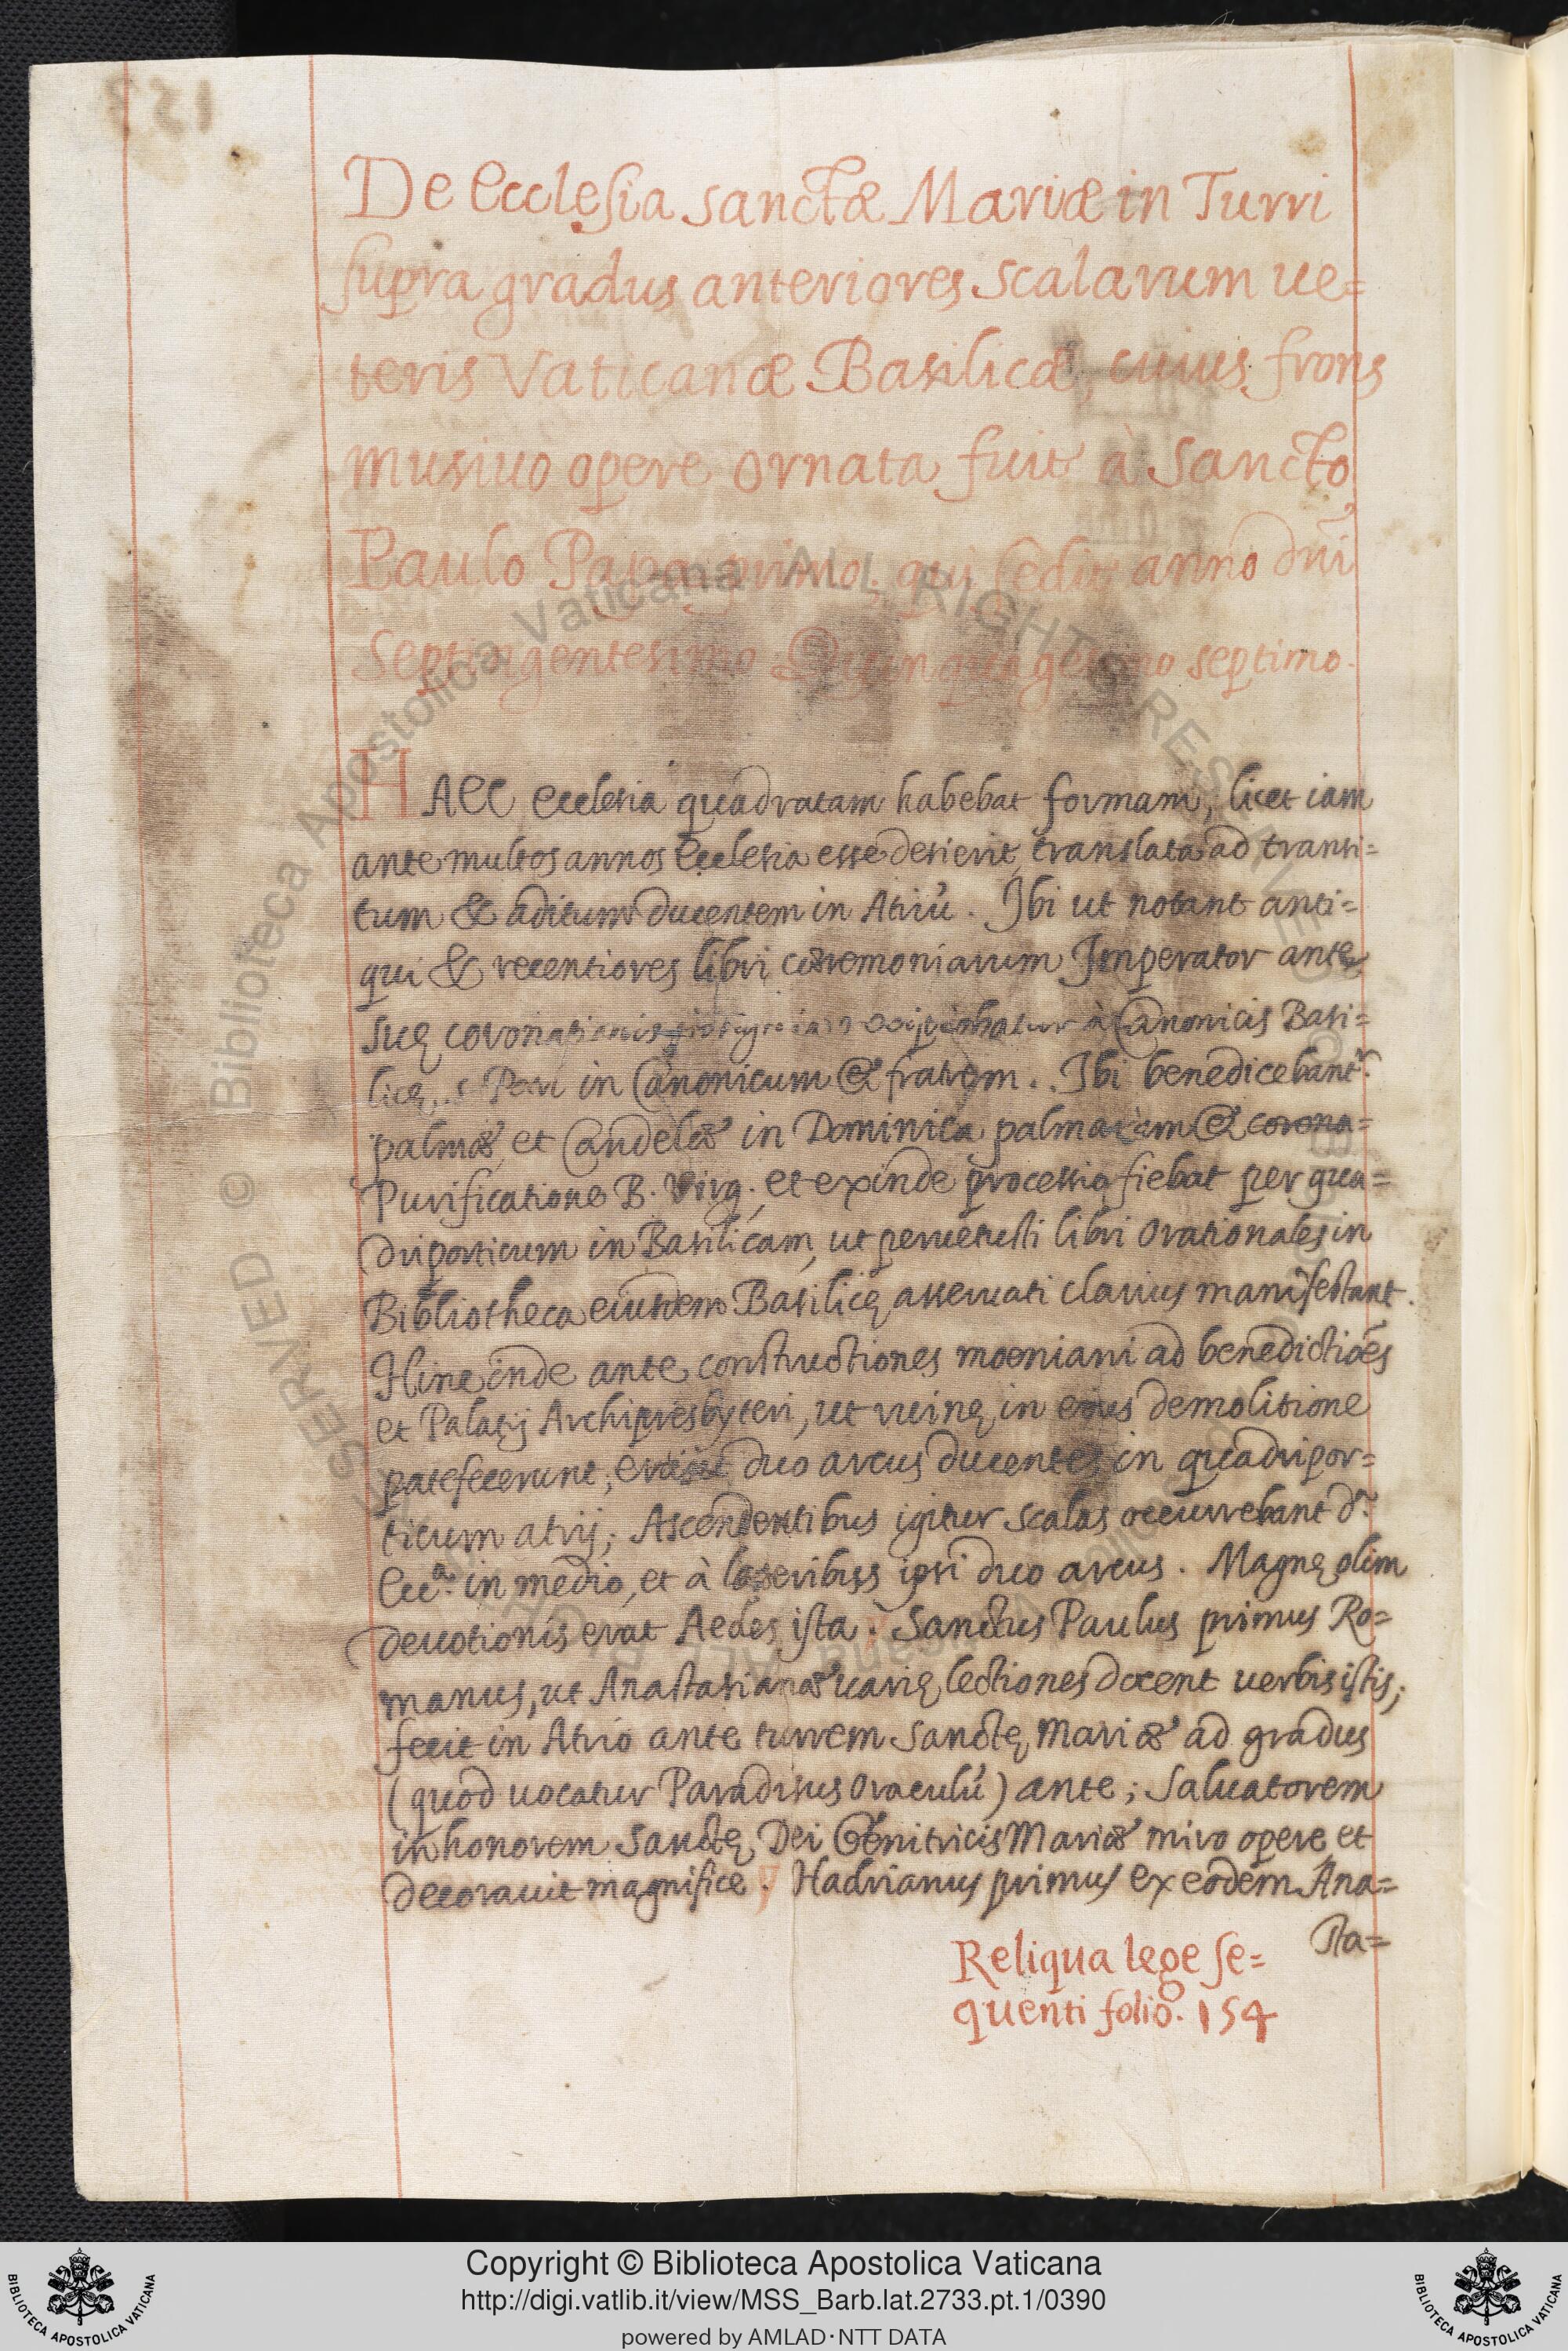 De Ecclesia sanctæ Mariæ in Turri
supra gradus anteriores scalarum ue=
teris Vaticanæ Basilicæ, cuius frons
musiuo opere ornata fuit à Sancto
Paulo Papa primo, qui sedit anno dñi
Septingentesimo Quinquagesimo septimo.
HAEC Ecclesia quadratam habebat formam, licet iam
ante multos annos Ecclesia esse desierit, translata ad transi=
tum & aditum ducentem in Atriũ. Ibi ut notant anti=
qui & recentiores libri cæremoniarum Imperator ante
suę coronationis recipiebatur à Canonicis Basi=
licę s. Petri in Canonicum & fratrem. Ibi benedicebant.r
palmæ et Candelæ in Dominica palmarum & corona=
Purificatione B. Virg., et exinde processio fiebat per qua=
driporticum in Basilicam, ut peruetusti libri Orationales in
Bibliotheca eiusdem Basilicę asseruati clarius manifestant.
Hinc inde ante constructiones moeniani ad benedictiões
et Palatij Archipresbyteri, ut ruinę in eius demolitione
patefecerunt, erãt duo arcus ducentes in quadripor=
ticum atrij; Ascendentibus igitur scalas occurrebant d.a
Ecc.a in medio, et à lateribus ipsi duo arcus. Magnę olim
deuotionis erat Aedes ista. Sanctus Paulus primus Ro=
manus, ut Anastasianæ uarię lectiones docent uerbis istis;
fecit in Atrio ante turrem Sanctę Mariæ ad gradus
(quod uocatur Paradisus Oraculũ) ante; Saluatorem
in honorem Sanctę Dei Genitricis Mariæ miro opere et
decorauit magnifice. Hadrianus primus ex eodem Ana=
sta=
Reliqua lege se=
quenti folio. 154
153
Copyright © Biblioteca Apostolica Vaticana
http://digi.vatlib.it/view/MSS_Barb.lat.2733.pt.1/0390
powered by AMLAD·NTT DATA
BIBLIOTECA APOSTOLICA VATICANA
BIBLIOTECA APOSTOLICA VATICANA
© Biblioteca Apostolica Vaticana ALL RIGHTS RESERVED